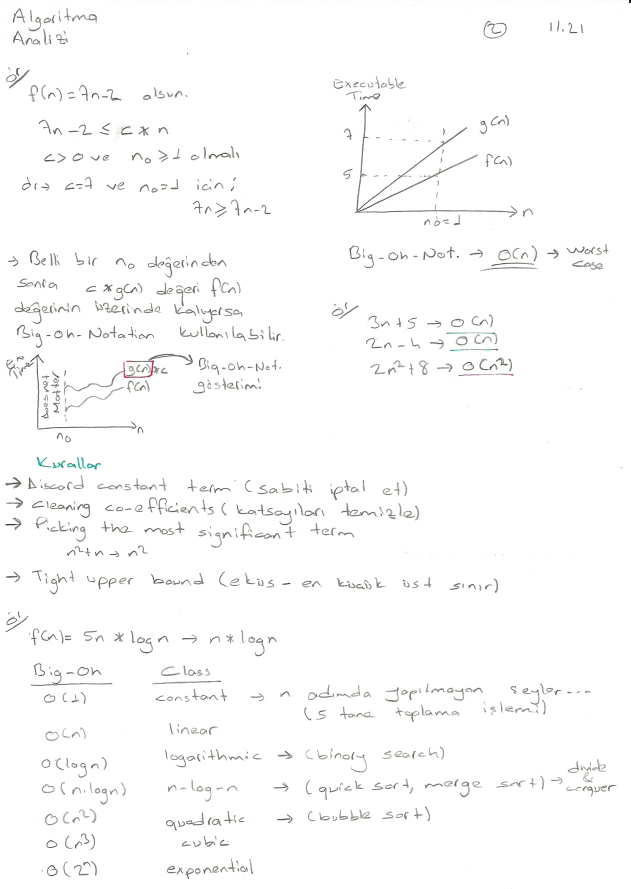 Algoritma
Analizi
2
11.21
ör/
f(n) = 7n-2 olsun.
7n-2 ≤ c * n
c>0 ve n₀ ≥ 1 olmalı
ör→ c=7 ve n₀=1 icin;
7n ≥ 7n-2
Executable
Time
7
5
g(n)
f(n)
n₀=1
n
Big-Oh-Not. → O(n) → worst case
→ Belli bir n₀ değerinden
sonra c*g(n) değeri f(n)
değerinin üzerinde kalıyorsa
Big-Oh-Notation kullanılabilir.
ör/
3n+5 → O(n)
2n-4 → O(n)
2n²+8 → O(n²)
Time
Does not
Matter
g(n)*c
f(n)
n₀
n
Big-Oh-Not.
gösterimi
Kurallar
→ Discord constant term (sabiti iptal et)
→ cleaning co-efficients (katsayıları temizle)
→ Picking the most significant term
n²+n → n²
→ Tight upper bound (eküs - en küçük üst sınır)
ör/
f(n)= 5n * logn → n * logn
Big-Oh Class
O(1) constant → n adımda yapılmayan şeyler...
(5 tane toplama işlemi)
O(n) linear
O(logn) logarithmic → (binary search)
O(n.logn) n-log-n → (quick sort, merge sort) → divide & conquer
O(n²) quadratic → (bubble sort)
O(n³) cubic
O(2ⁿ) exponential